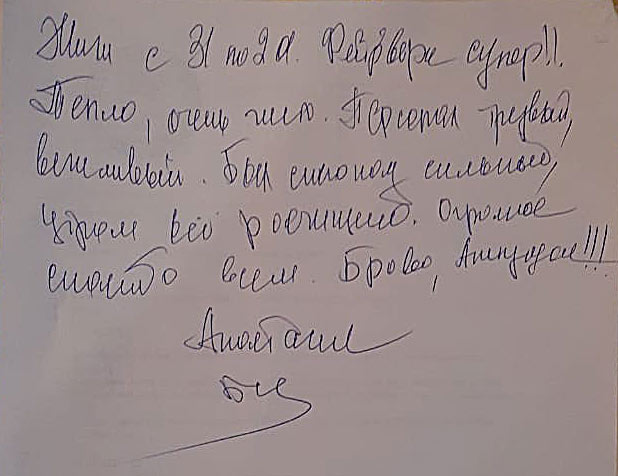 Жили с 31 по 2 я. Фейрверк супер!!.
Тепло, очень чисто. Персонал трезвый,
вежливый. Был снегопад сильный,
утром всё расчищено. Огромное
спасибо всем. Браво,
Анастасия